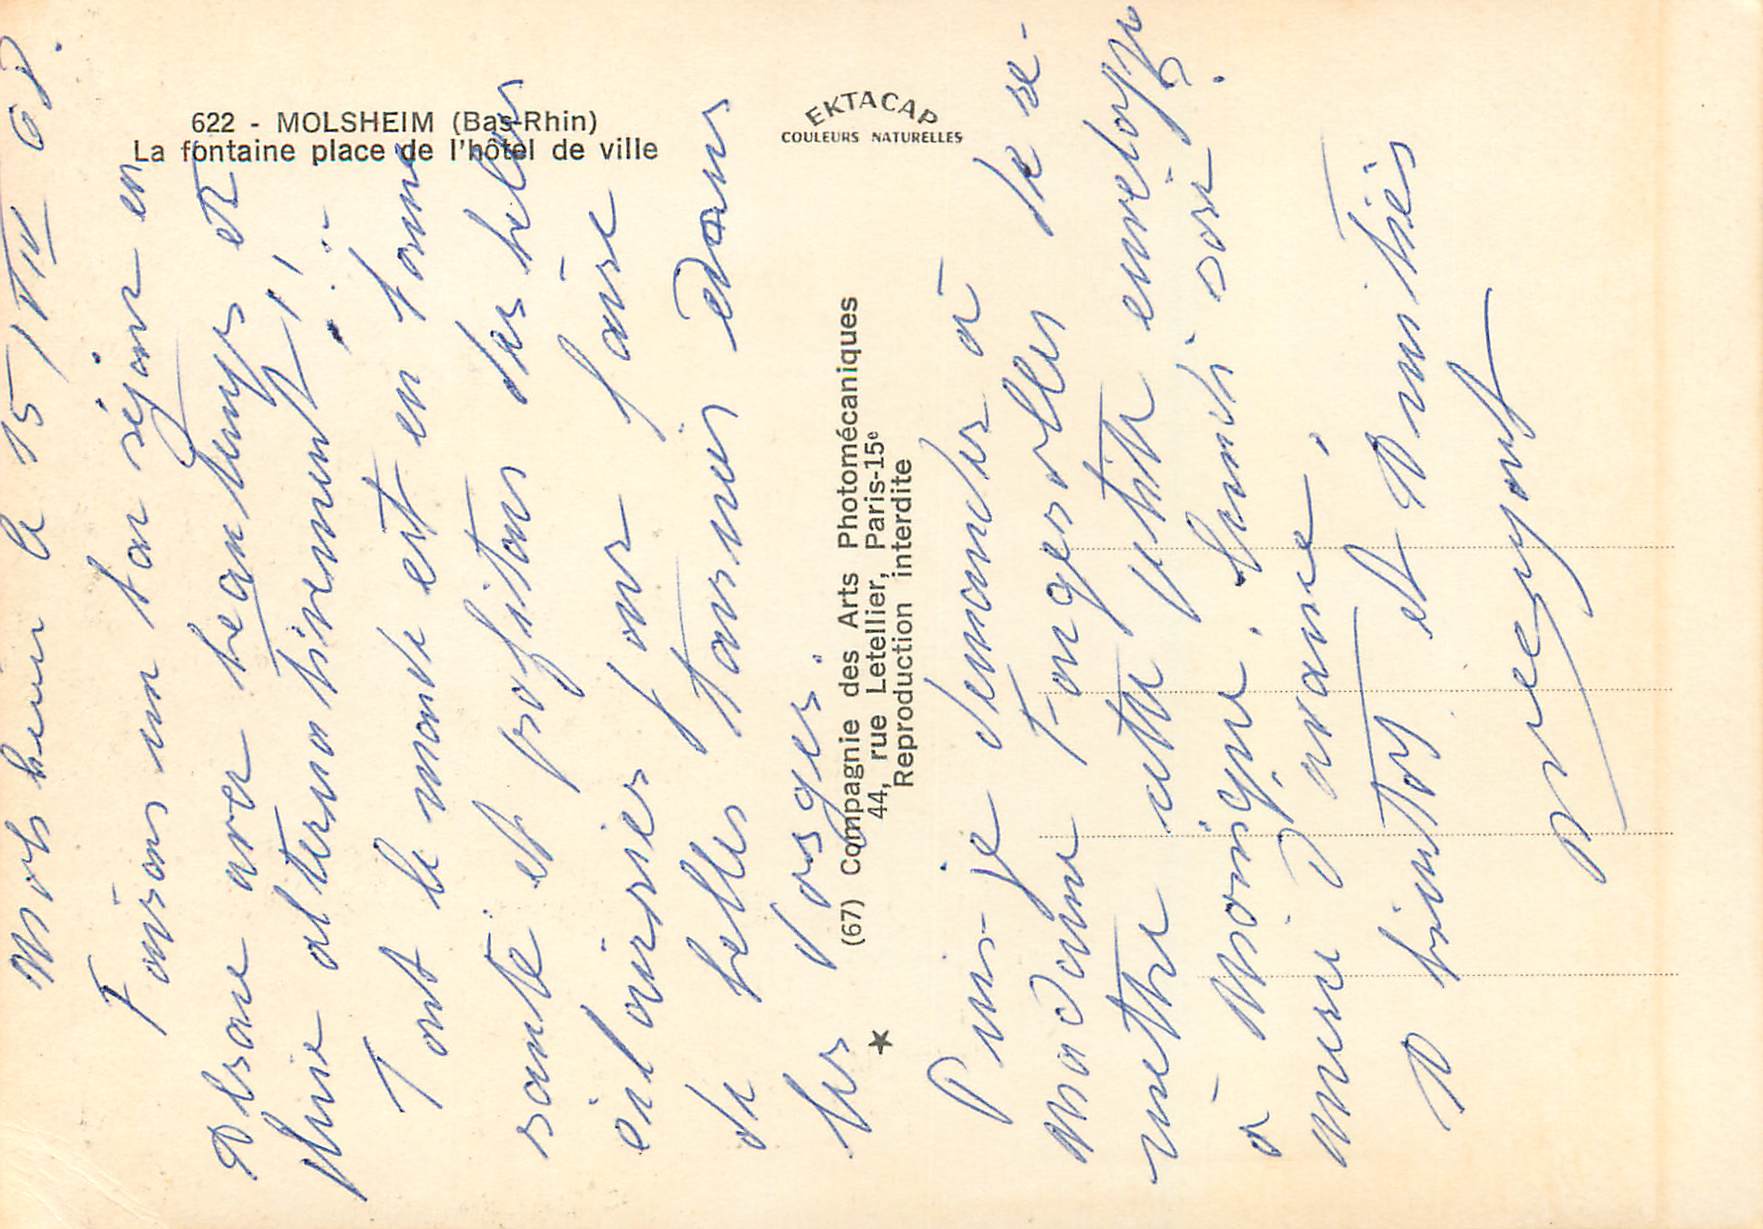 622 - MOLSHEIM (Bas-Rhin)
La fontaine place de l'hôtel de ville
EKTACAP
COULEURS NATURELLES
(67) Compagnie des Arts Photomécaniques
44, rue Letellier, Paris-15e
Reproduction interdite
Molsheim le 15/VIII 68.
Faisons un bon séjour en
Alsace avec beau temps et
pluie alternativement!
Tout le monde est en bonne
santé et profitons des belles
pour faire
de belles tournées dans
les Vosges.
Puis-je demander à
Madame de re-
mettre cette petite enveloppe
à Monique. lundi soir.
merci d'avance,
A bientôt et Amitiés